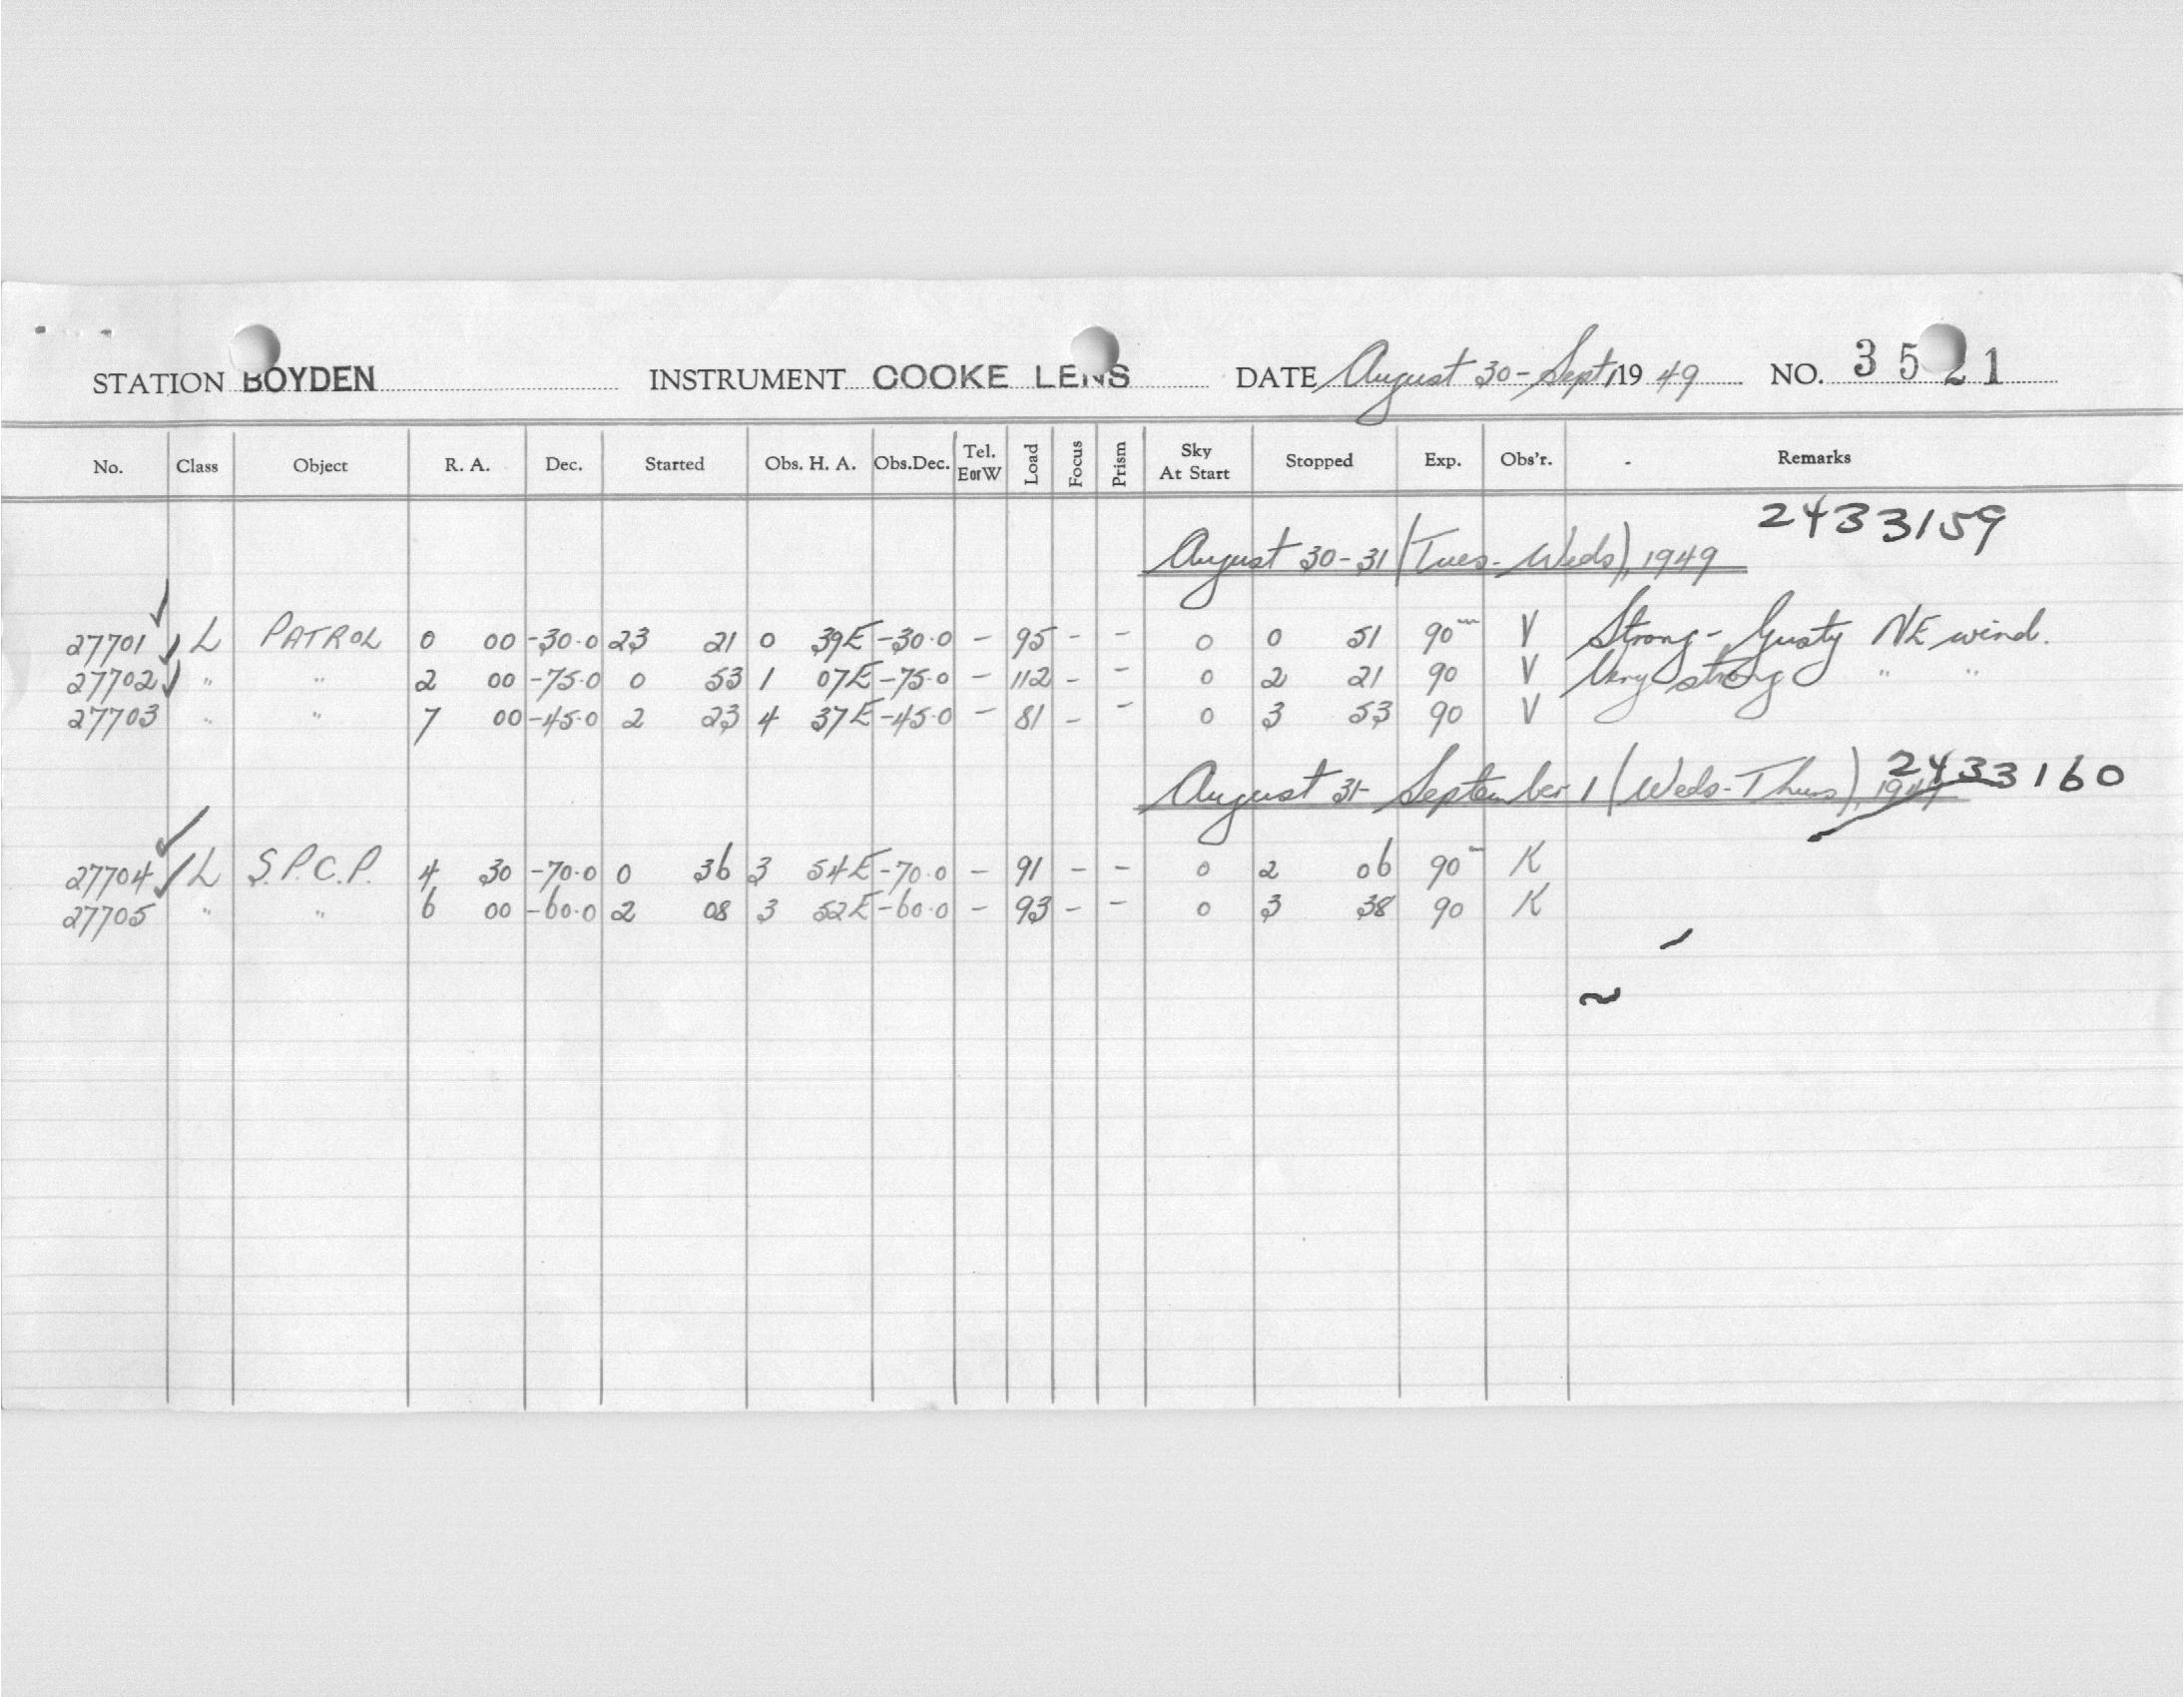 STATION BOYDEN INSTRUMENT COOKE LENS DATE August 30-Sept 1, 1949 NO. 3521
No. Class Object R. A. Dec. Started Obs. H. A. Obs.Dec. Tel. EorW Load Focus Prism Sky At Start Stopped Exp. Obs'r. Remarks
2433159
August 30-31 (Tues-Weds), 1949
27701 L PATROL 0 00 -30.0 23 21 0 39E -30.0 - 95 - - 0 0 51 90m V Strong-Gusty NE wind.
27702 " " 2 00 -75.0 0 53 1 07E -75.0 - 112 - - 0 2 21 90 V Very strong " "
27703 " " 7 00 -45.0 2 23 4 37E -45.0 - 81 - - 0 3 53 90 V
August 31-September 1 (Weds-Thurs), 1949 2433160
27704 L S.P.C.P. 4 30 -70.0 0 36 3 54E -70.0 - 91 - - 0 2 06 90m K
27705 " " 6 00 -60.0 2 08 3 52E -60.0 - 93 - - 0 3 38 90 K